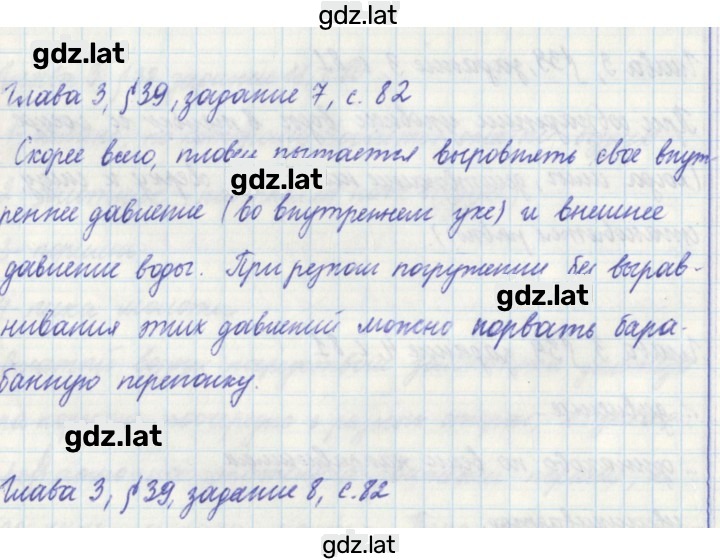 gdz.lat
gdz.lat
Глава 3, §39, задание 7, с. 82
Скорее всего, пловец пытается выровнять свое внут-
gdz.lat
реннее давление (во внутреннем ухе) и внешнее
давление воды. При резком погружении без вырав-
gdz.lat
нивания этих давлений можно порвать бара-
банную перепонку.
gdz.lat
Глава 3, §39, задание 8, с. 82
gdz.lat